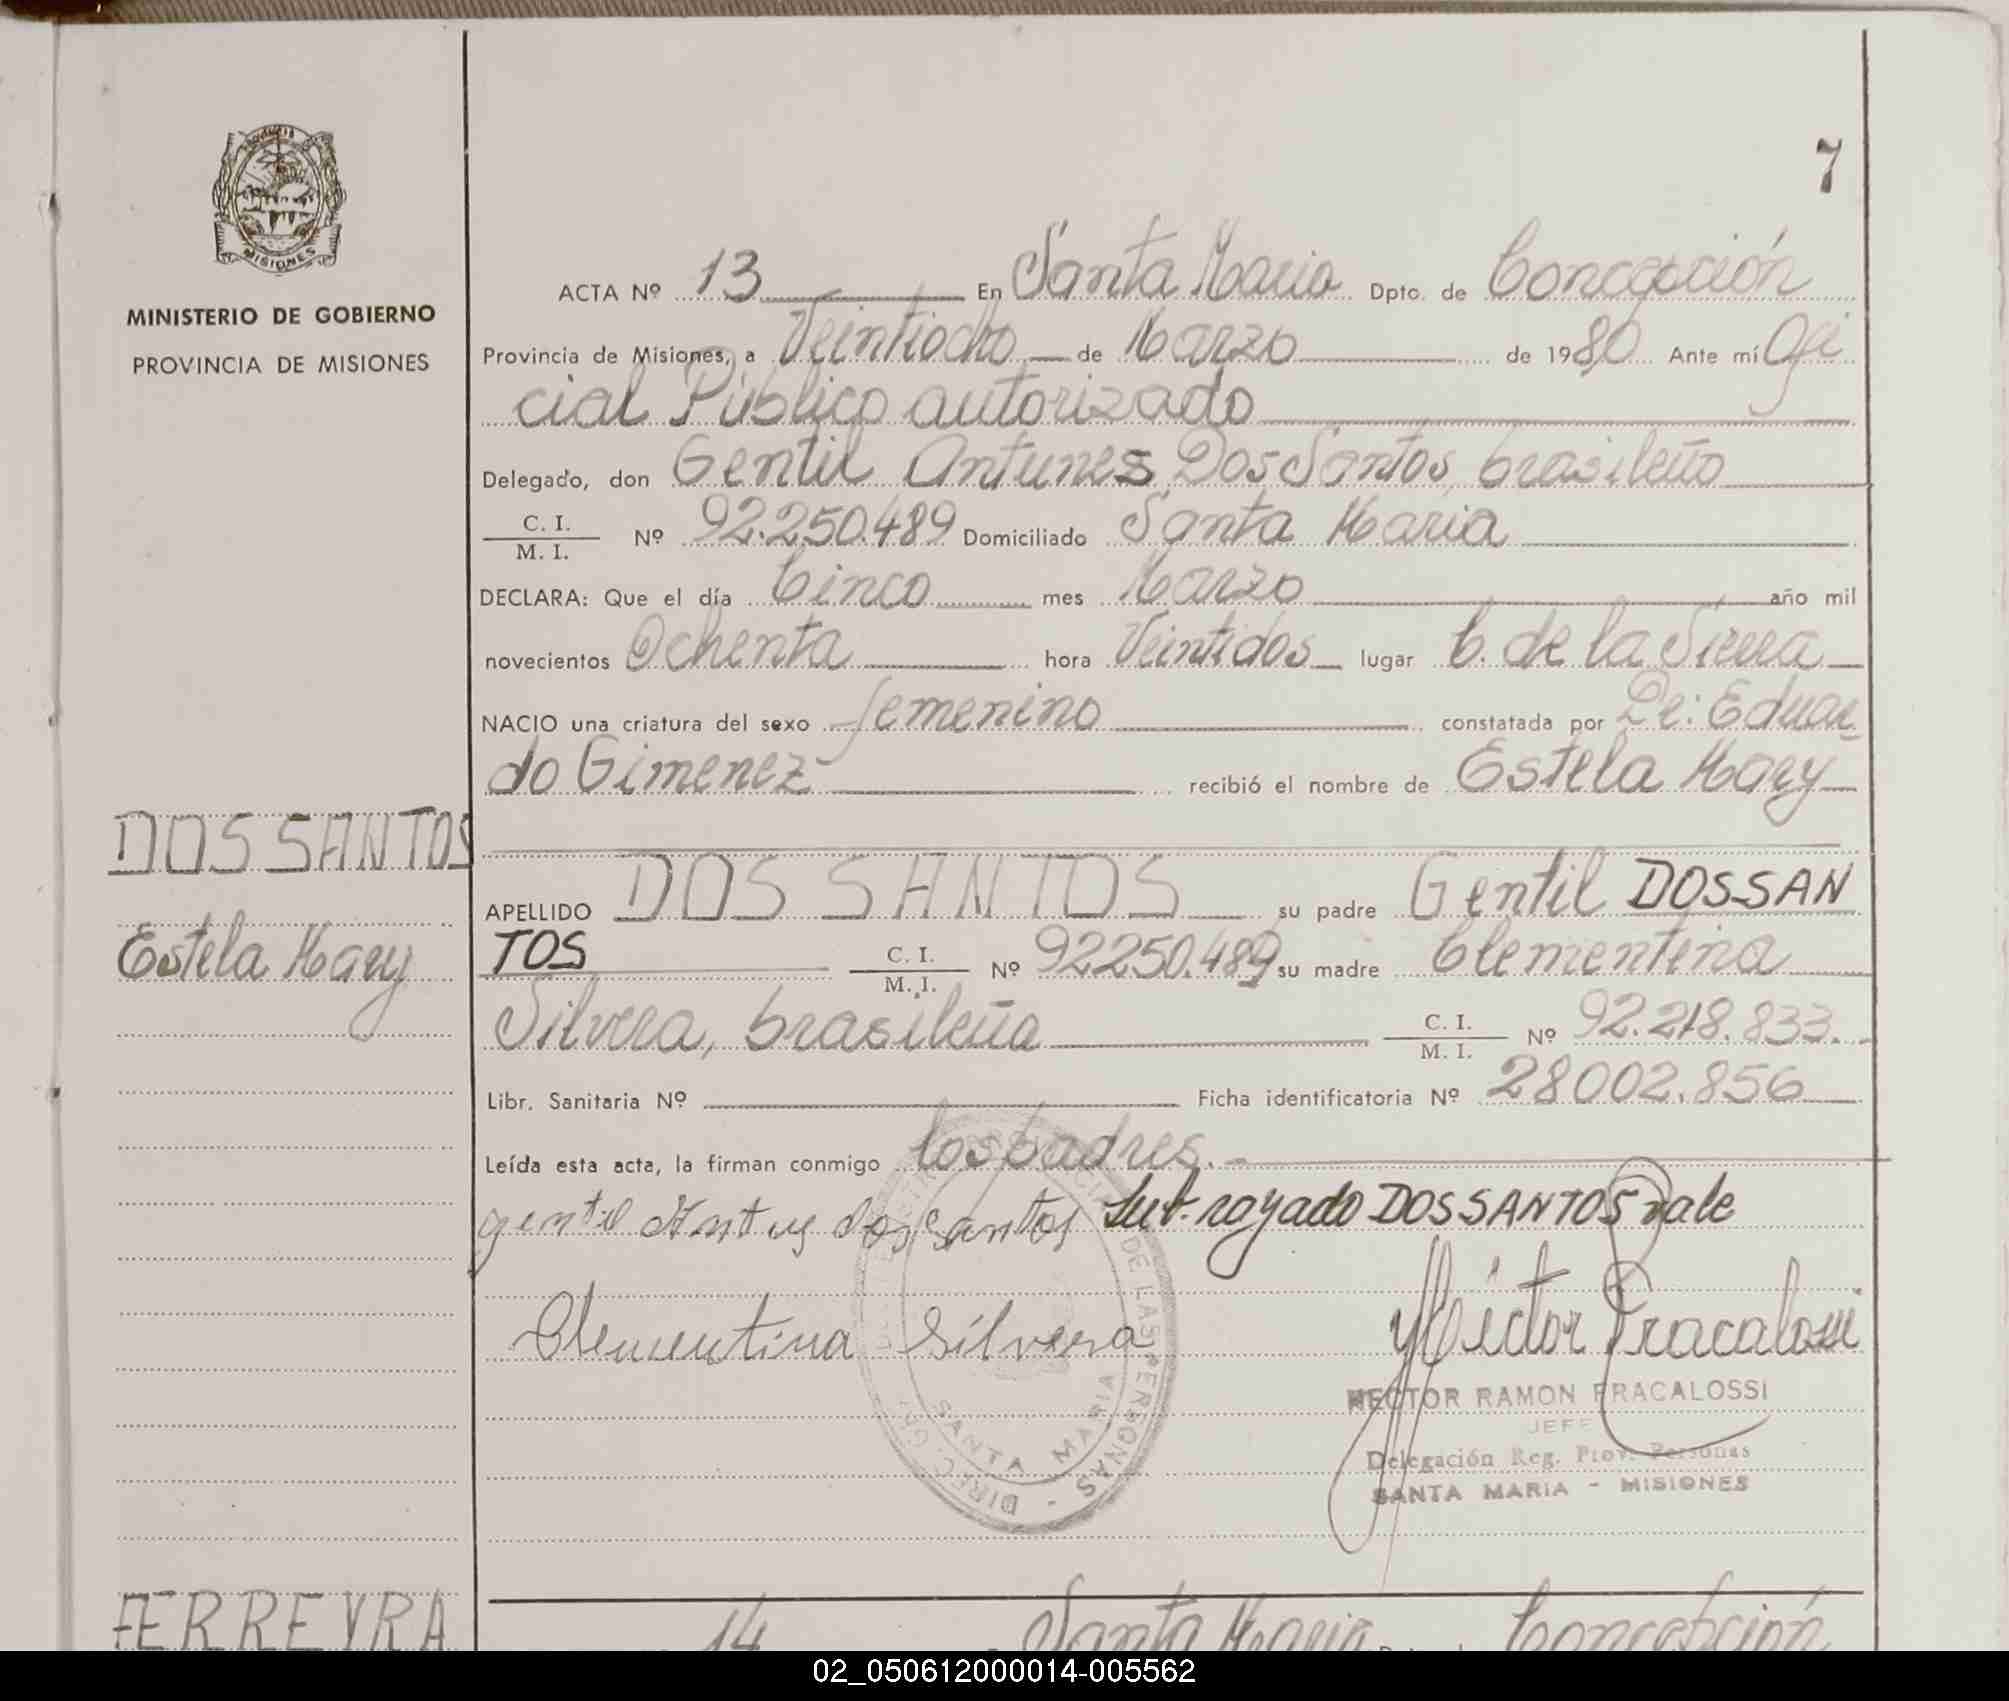 7
PROVINCIA DE
MISIONES
MINISTERIO DE GOBIERNO
PROVINCIA DE MISIONES
ACTA Nº 13 En Santa Maria Dpto. de Concepción
Provincia de Misiones, a Veintiocho de Marzo de 1980 Ante mí Ofi
cial Público autorizado
Delegado, don Gentil Antunes Dos Santos, brasileño
C. I.
M. I. Nº 92.250.489 Domiciliado Santa Maria
DECLARA: Que el día Cinco mes Marzo año mil
novecientos Ochenta hora Veintidos lugar C. de la Sierra
NACIO una criatura del sexo femenino constatada por Dr: Eduar
do Gimenez recibió el nombre de Estela Mary
DOS SANTOS
APELLIDO DOS SANTOS su padre Gentil DOSSAN
Estela Mary
TOS C. I. M. I. Nº 92250.489 su madre Clementina
Silvera, brasileña C. I. M. I. Nº 92.218.833.
Libr. Sanitaria Nº Ficha identificatoria Nº 28002.856
Leída esta acta, la firman conmigo los padres.
gentil Antus dos Santos Sub-rayado DOSSANTOS vale
Clementina Silvera Héctor Fracalossi
HECTOR RAMON FRACALOSSI
JEFE
Delegación Reg. Prov. Personas
SANTA MARIA - MISIONES
DE LAS PERSONAS - DIREC. GRAL.
SANTA MARIA
FERREYRA
14 Santa Maria Concepción
02_050612000014-005562